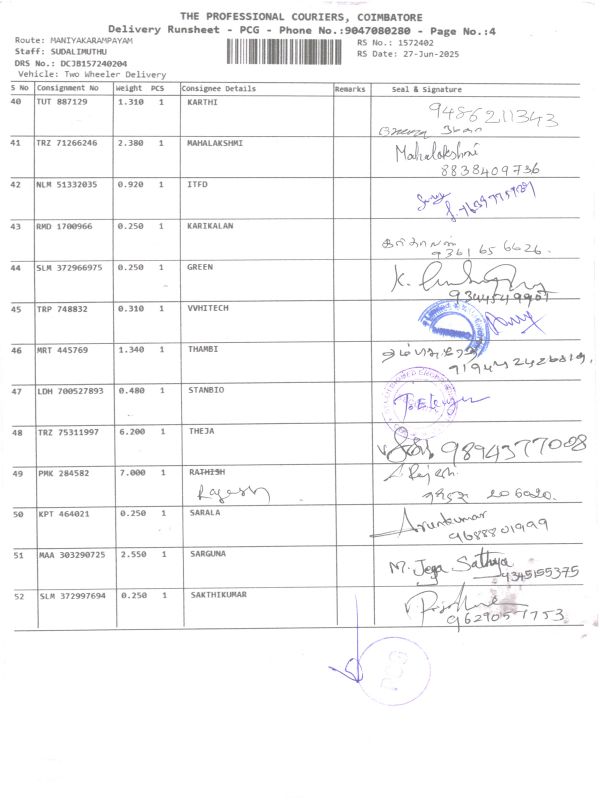 THE PROFESSIONAL COURIERS, COIMBATORE
Delivery Runsheet - PCG - Phone No.:9047080280 - Page No.:4
Route: MANIYAKARAMPAYAM
RS No.: 1572402
Staff: SUDALIMUTHU
RS Date: 27-Jun-2025
DRS No.: DCJB157240204
Vehicle: Two Wheeler Delivery
S No Consignment No Weight PCS Consignee Details Remarks Seal & Signature
40 TUT 887129 1.310 1 KARTHI 9486211343
41 TRZ 71266246 2.380 1 MAHALAKSHMI Mahalakshmi
8838409736
42 NLM 51332035 0.920 1 ITFD
43 RMD 1700966 0.250 1 KARIKALAN கரிகாலன்
9361 65 6626.
44 SLM 372966975 0.250 1 GREEN
45 TRP 748832 0.310 1 VVHITECH
46 MRT 445769 1.340 1 THAMBI
47 LDH 700527893 0.480 1 STANBIO
48 TRZ 75311997 6.200 1 THEJA
49 PMK 284582 7.000 1 RATHISH
Rajesh
50 KPT 464021 0.250 1 SARALA Arunkumar
9688801999
51 MAA 303290725 2.550 1 SARGUNA M. Jega Sathya
9345155375
52 SLM 372997694 0.250 1 SAKTHIKUMAR
PCG